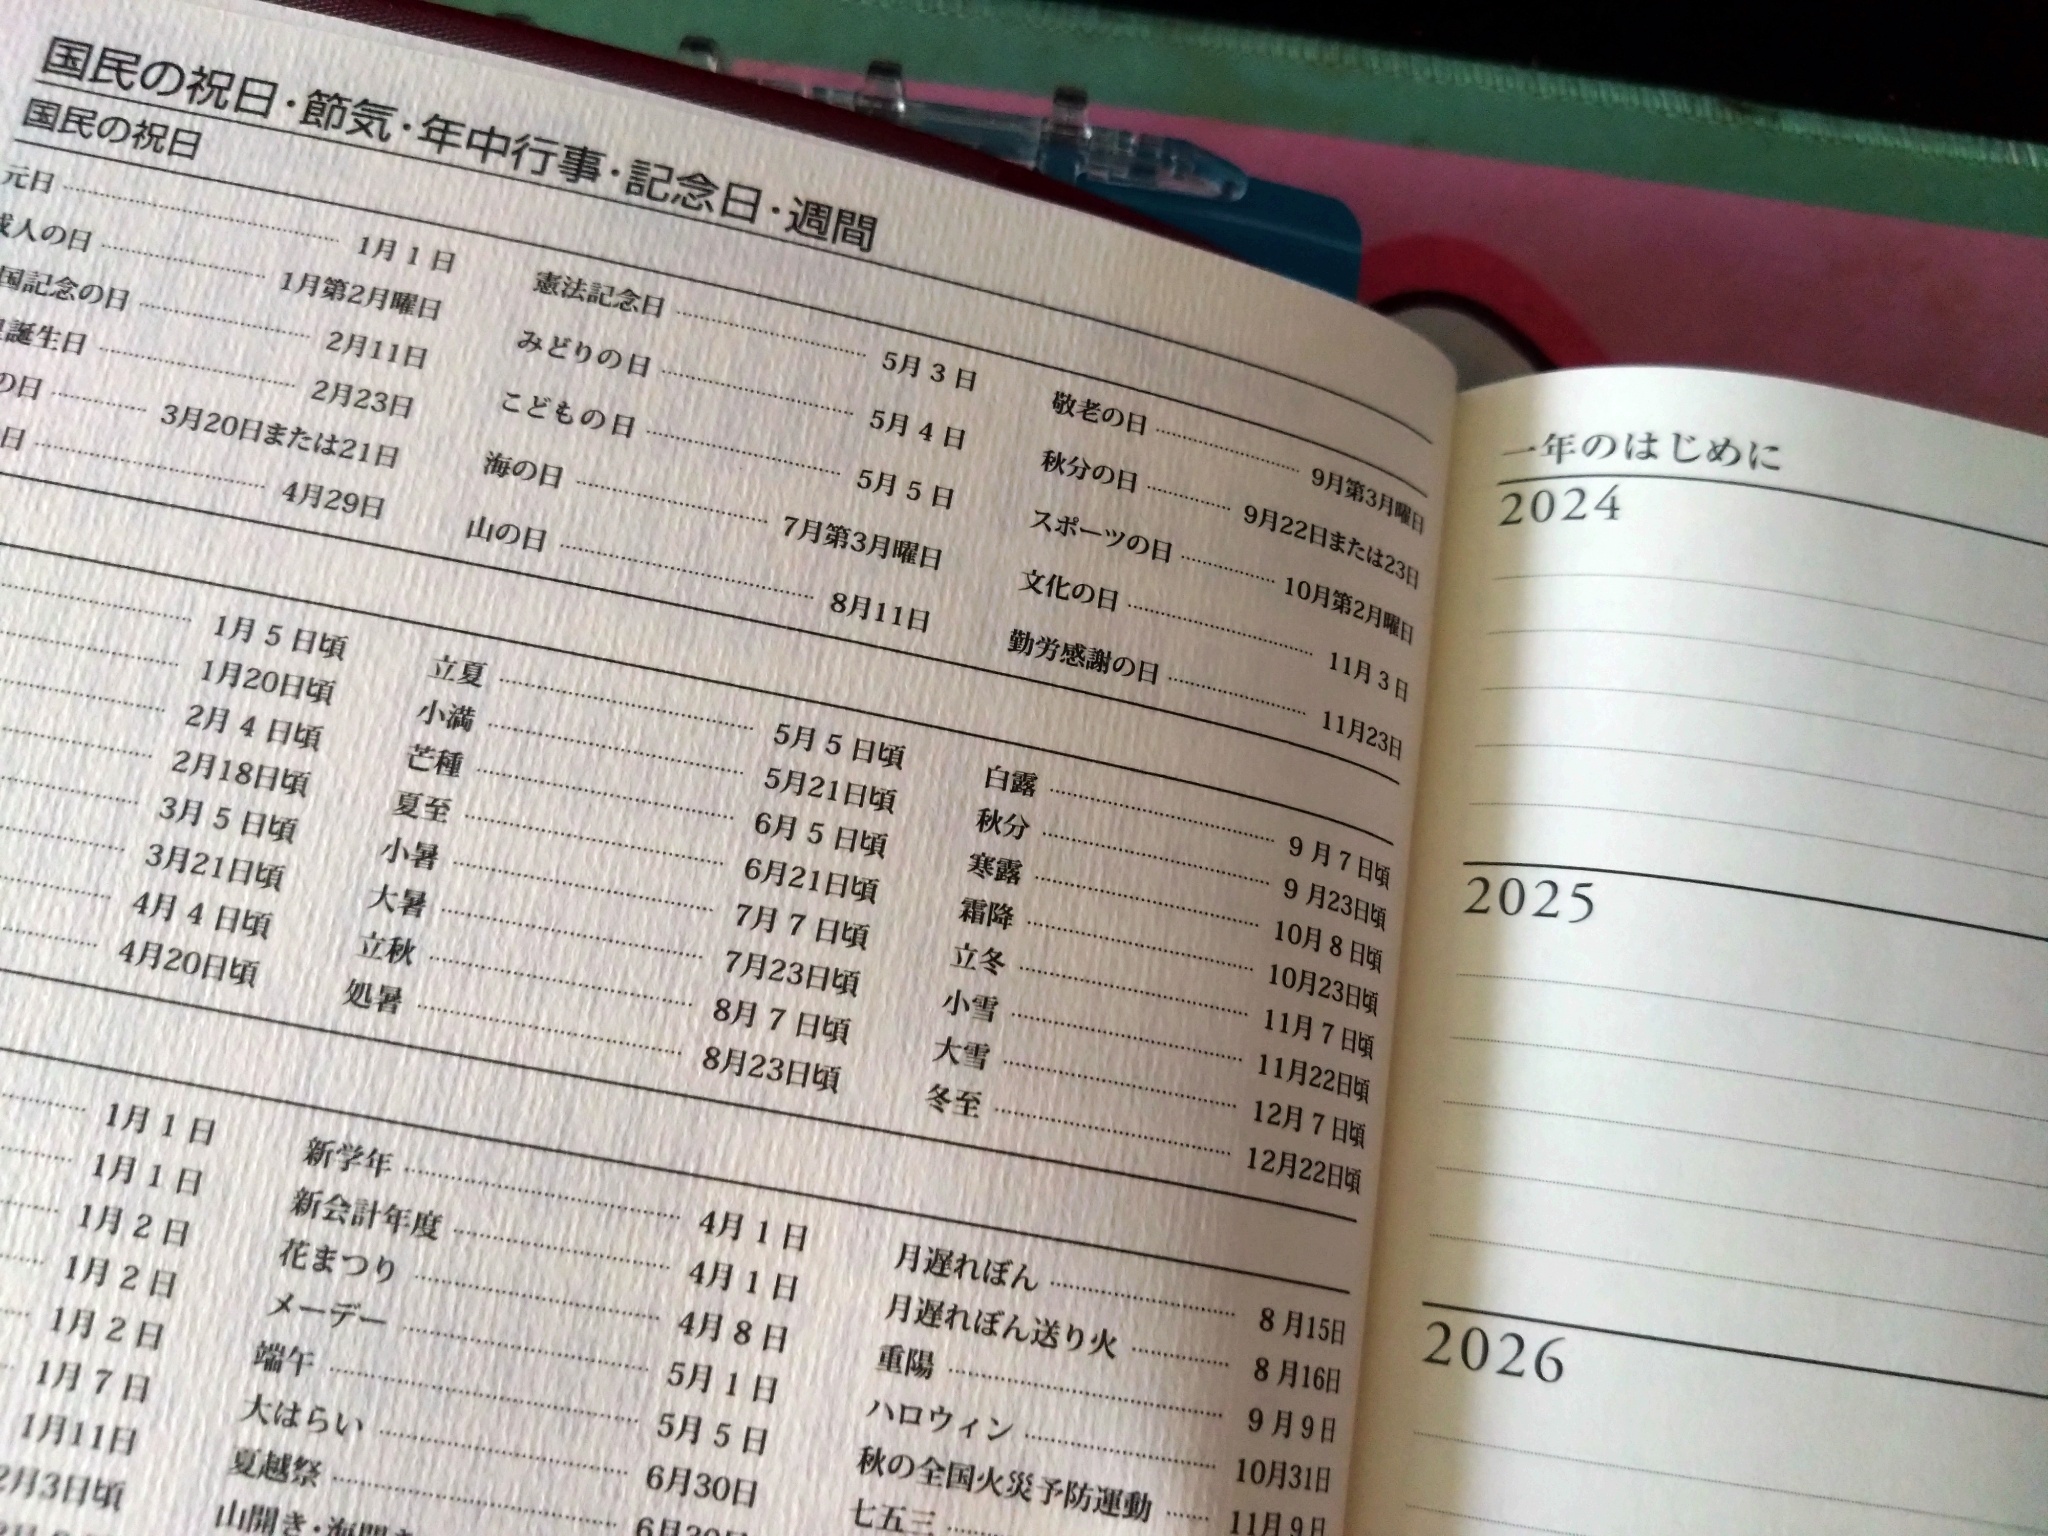 国民の祝日・節気・年中行事・記念日・週間
国民の祝日
元日 1月1日
成人の日 1月第2月曜日
国記念の日 2月11日
誕生日 2月23日
の日 3月20日または21日
日 4月29日
憲法記念日 5月3日
みどりの日 5月4日
こどもの日 5月5日
海の日 7月第3月曜日
山の日 8月11日
敬老の日 9月第3月曜日
秋分の日 9月22日または23日
スポーツの日 10月第2月曜日
文化の日 11月3日
勤労感謝の日 11月23日
1月5日頃
1月20日頃
2月4日頃
2月18日頃
3月5日頃
3月21日頃
4月4日頃
4月20日頃
立夏 5月5日頃
小満 5月21日頃
芒種 6月5日頃
夏至 6月21日頃
小暑 7月7日頃
大暑 7月23日頃
立秋 8月7日頃
処暑 8月23日頃
白露 9月7日頃
秋分 9月23日頃
寒露 10月8日頃
霜降 10月23日頃
立冬 11月7日頃
小雪 11月22日頃
大雪 12月7日頃
冬至 12月22日頃
1月1日
1月1日
1月2日
1月2日
1月2日
1月7日
1月11日
2月3日頃
新学年 4月1日
新会計年度 4月1日
花まつり 4月8日
メーデー 5月1日
端午 5月5日
大はらい 6月30日
夏越祭 6月30日
山開き・海開き
月遅れぼん 8月15日
月遅れぼん送り火 8月16日
重陽 9月9日
ハロウィン 10月31日
秋の全国火災予防運動 11月9日
七五三
一年のはじめに
2024
2025
2026